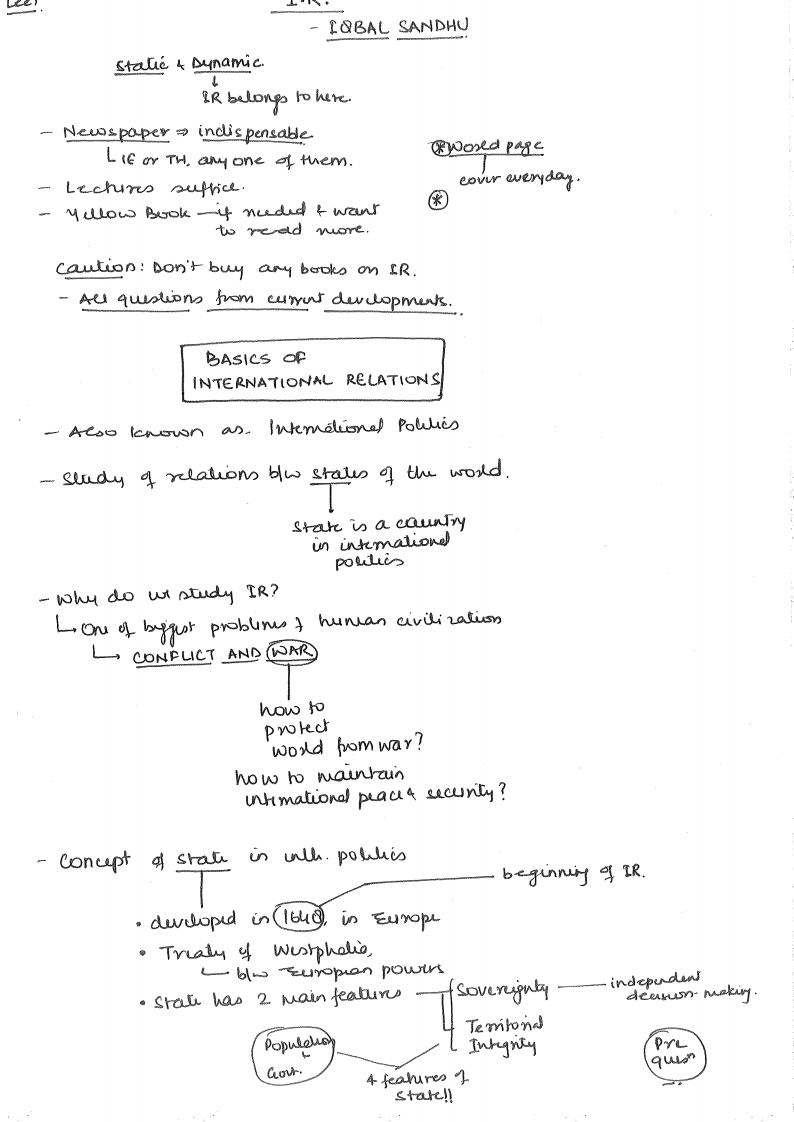 Lec 1
I.R.
- IQBAL SANDHU
Static & Dynamic.
IR belongs to here.
- Newspaper ⇒ indispensable
IE or TH, any one of them.
* World page
cover everyday.
- Lectures suffice.
*
- Yellow Book - if needed & want
to read more.
Caution: Don't buy any books on IR.
- All questions from current developments.
BASICS OF
INTERNATIONAL RELATIONS
- Also known as. International Politics
- Study of relations b/w states of the world.
State is a country
in international
politics
- Why do we study IR?
One of biggest problems of human civilization
CONFLICT AND WAR
how to
protect
world from war?
how to maintain
international peace & security?
- Concept of state in intl. politics
beginning of IR.
• developed in 1648, in Europe
• Treaty of Westphalia,
b/w European powers
• State has 2 main features
Sovereignty
independent
decision-making.
Territorial
Integrity
Population
Govt.
4 features of
state!!
Pre
quesn